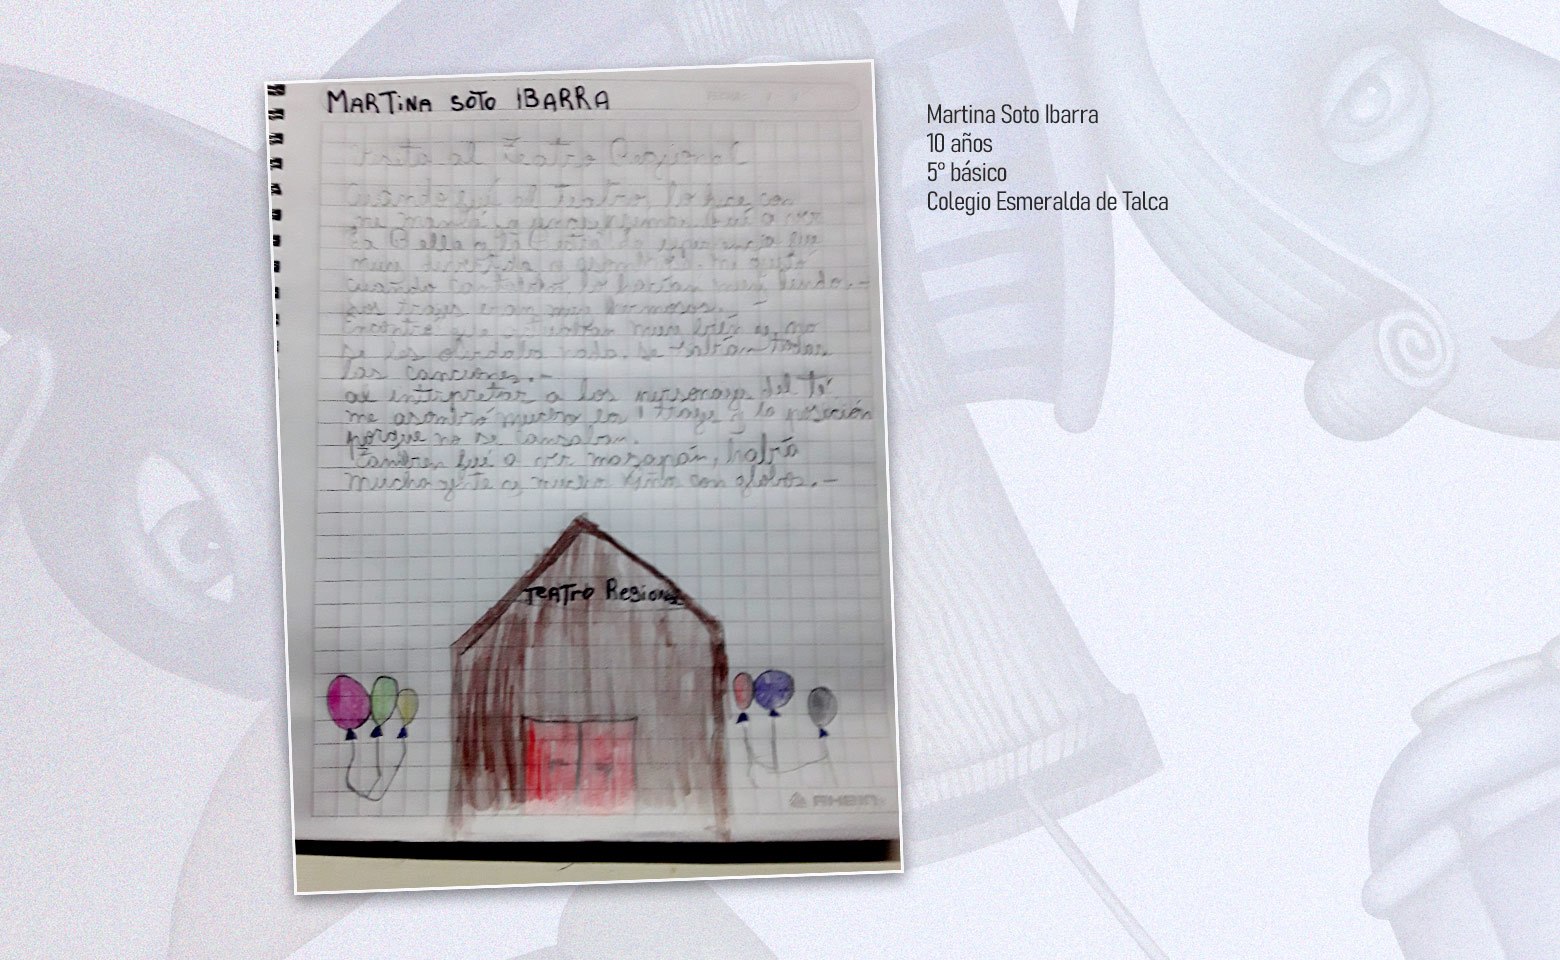 MARTINA SOTO IBARRA
Visita al Teatro Regional
Cuando fuí al Teatro, lo hice con
mi mamá, fuí a ver
La Bella y la Bestia la experiencia fue
muy divertida me gustó
cuando cantaban lo hacían muy lindo.-
los trajes eran muy hermosos.-
Encontré que actuaban muy bien y no
se les olvidaba nada. se sabían todas
las canciones.-
al interpretar a los personajes del
me asombró mucho trajes y la posición
porque no se cansaban.
También fuí a ver mazapán, había
mucha gente y mucho niño con globos.-
TEATRO Regional
RHEIN
Martina Soto Ibarra
10 años
5° básico
Colegio Esmeralda de Talca